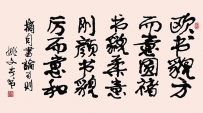 欧书貌方
而意圆褚
书貌柔意
刚颜书貌
厉而意和
摘自書論